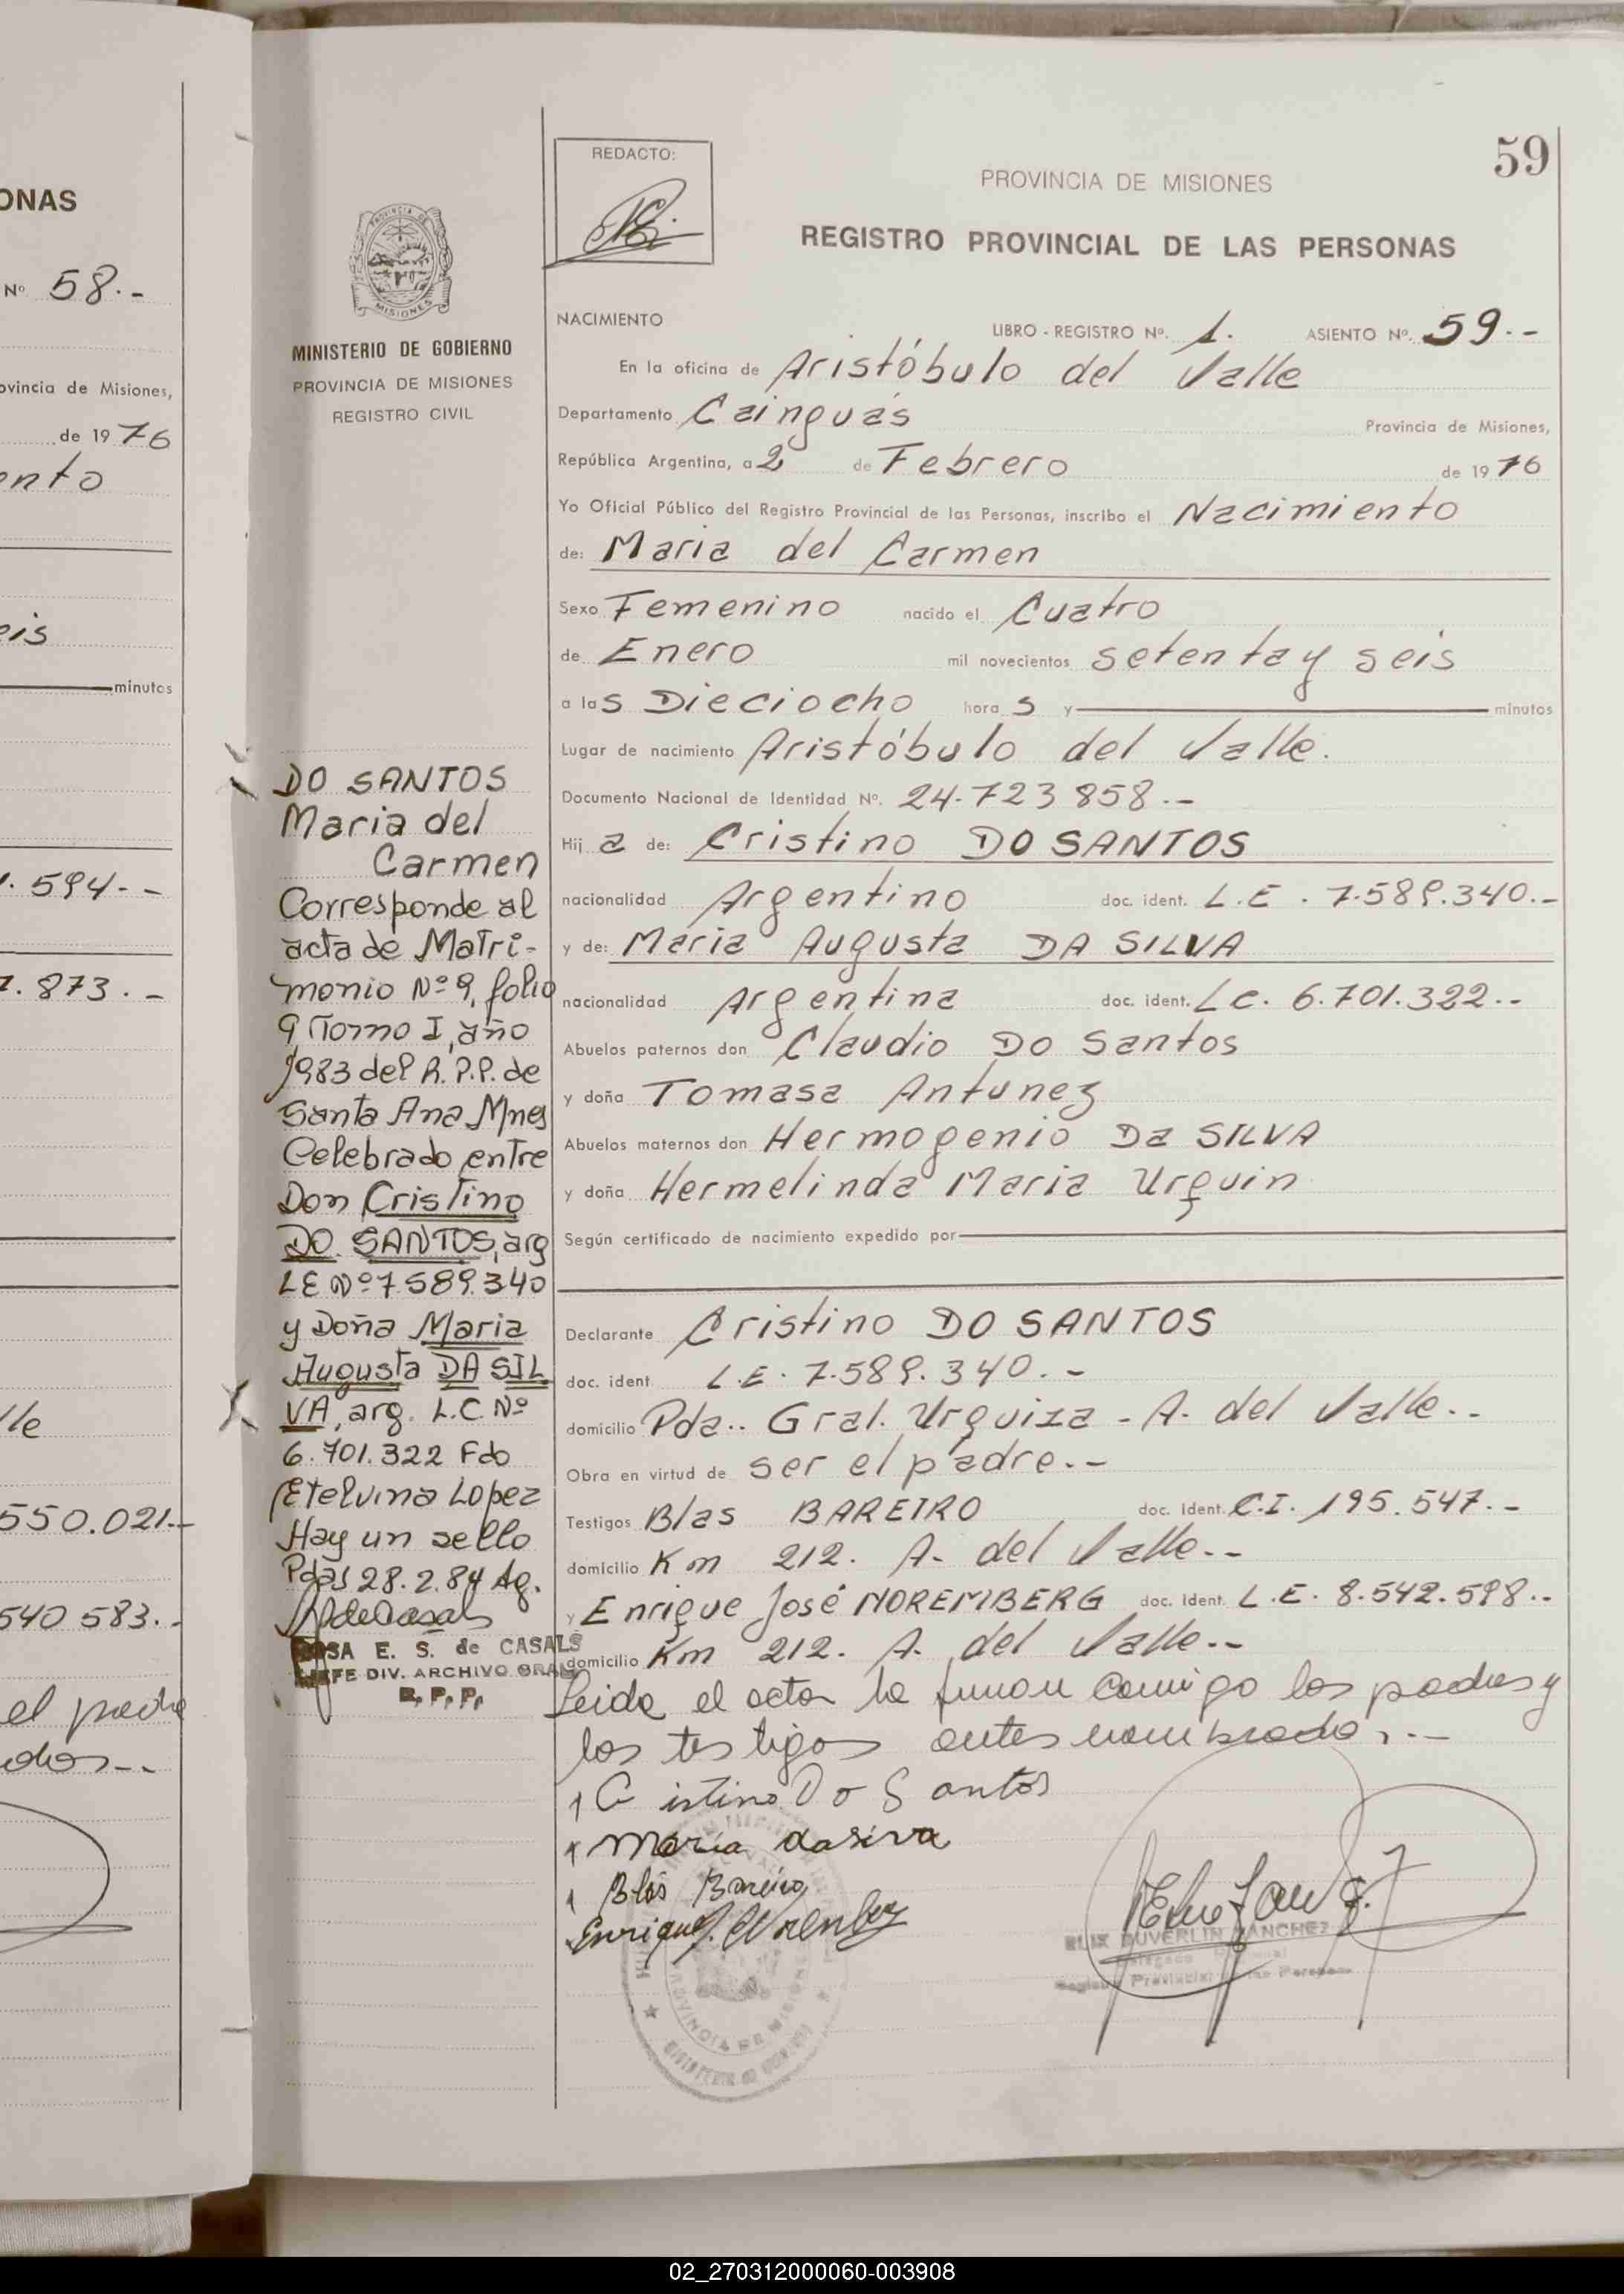 ONAS
Nº 58.-
ovincia de Misiones,
de 1976
ento
eis
minutos
.594--
7.873.-
lle
550.021.-
540 583.-
el padre
dos--
59
REDACTO:
PROVINCIA DE MISIONES
REGISTRO PROVINCIAL DE LAS PERSONAS
MISIONES
MINISTERIO DE GOBIERNO
PROVINCIA DE MISIONES
REGISTRO CIVIL
DO SANTOS
Maria del
Carmen
Corresponde al
acta de Matri-
monio Nº 9, folio
9 Tomo I, año
1983 del R.P.P. de
Santa Ana Mnes
Celebrado entre
Don Cristino
DO SANTOS, arg
LE Nº 7.589.340
y Doña Maria
Augusta DA SIL
VA, arg. L.C. Nº
6.701.322 Fdo
Etelvina Lopez
Hay un sello
Pdas 28.2.84 Ag.
ROSA E. S. de CASALS
JEFE DIV. ARCHIVO GRAL
R. P. P.
NACIMIENTO LIBRO - REGISTRO Nº. 1. ASIENTO Nº. 59.--
En la oficina de Aristóbulo del Valle
Departamento Cainguás Provincia de Misiones,
República Argentina, a 2 de Febrero de 1976
Yo Oficial Público del Registro Provincial de las Personas, inscribo el Nacimiento
de: Maria del Carmen
Sexo Femenino nacido el Cuatro
de Enero mil novecientos setenta y seis
a las Dieciocho horas y minutos
Lugar de nacimiento Aristóbulo del Valle.
Documento Nacional de Identidad Nº. 24.723 858.--
Hija de: Cristino DO SANTOS
nacionalidad Argentino doc. ident. L.E. 7.589.340.--
y de: Maria Augusta DA SILVA
nacionalidad Argentina doc. ident. L.C. 6.701.322--
Abuelos paternos don Claudio Do Santos
y doña Tomasa Antunez
Abuelos maternos don Hermogenio Da SILVA
y doña Hermelinda Maria Urquin
Según certificado de nacimiento expedido por
Declarante Cristino DO SANTOS
doc. ident. L.E. 7.589.340.-
domicilio Pda.. Gral. Urquiza - A. del Valle.-
Obra en virtud de ser el padre.--
Testigos Blas BAREIRO doc. Ident. C.I. 195.547.--
domicilio Km 212. A. del Valle.--
y Enrique José NOREMBERG doc. Ident. L.E. 8.542.598..
domicilio Km 212. A. del Valle.--
Leida el acta la firman conmigo los padres y
los testigos antes nombrados.--
Cristino Do Santos
Maria dasirva
Blas Bareiro
Enrique J. Norenberg
ELIX DUVERLIN SANCHEZ
Registro Provincial de las Personas
PROVINCIA DE MISIONES
MINISTERIO DE GOBIERNO
02_270312000060-003908